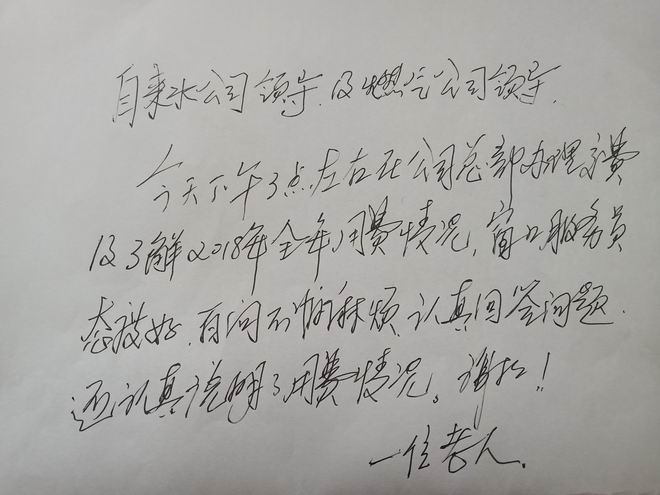 自来水公司领导及燃气公司领导.
今天下午3点左右在公司总部办理交费
及了解2018年全年用费情况,窗口服务员
态度好.有问不怕麻烦.认真回答问题.
还认真说明了用费情况。谢谢!
一位老人.